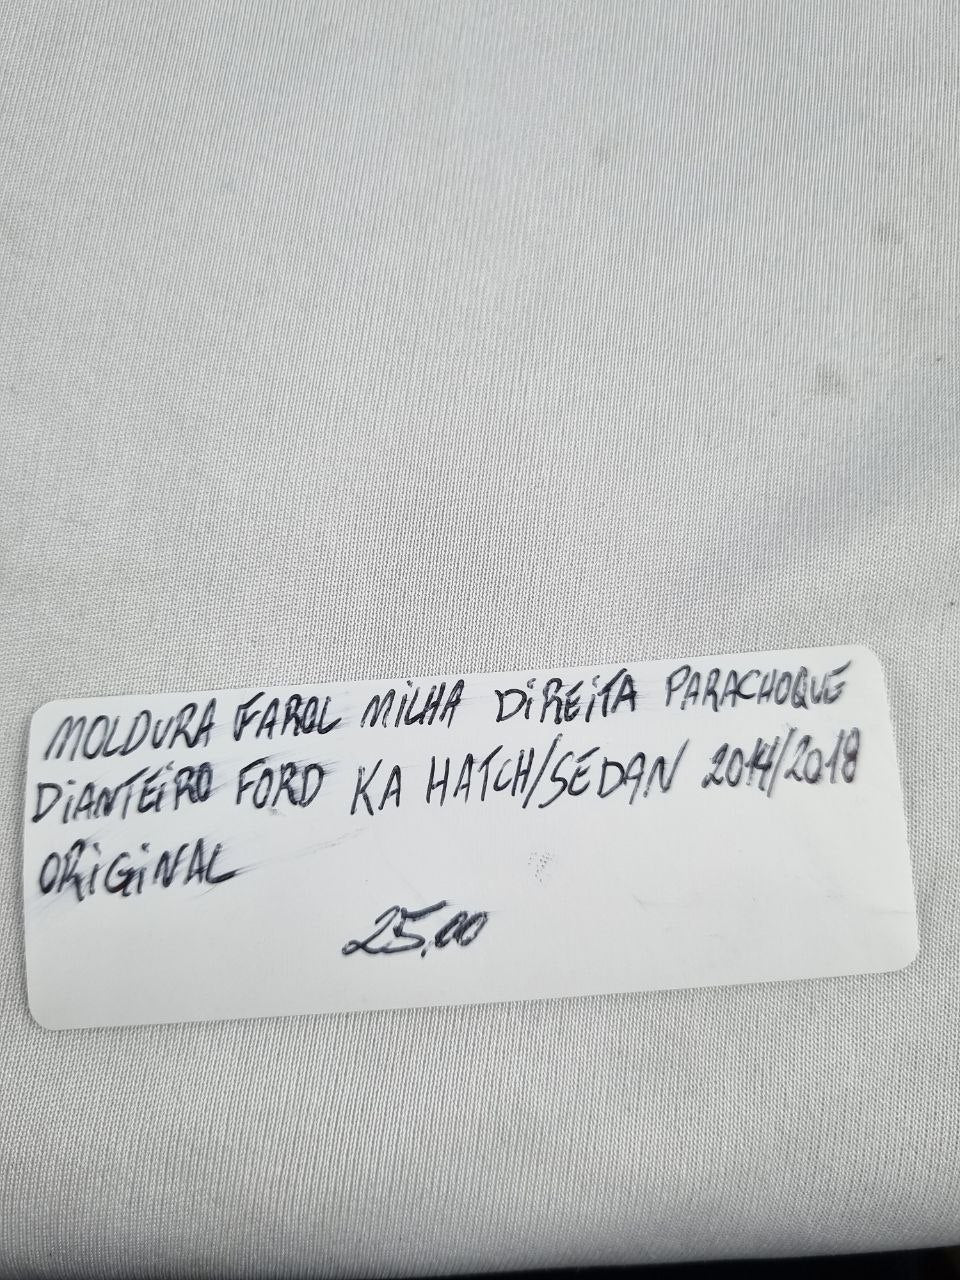 MOLDURA FAROL MILHA DIREITA PARACHOQUE
DIANTEIRO FORD KA HATCH/SEDAN 2014/2018
ORIGINAL
25,00